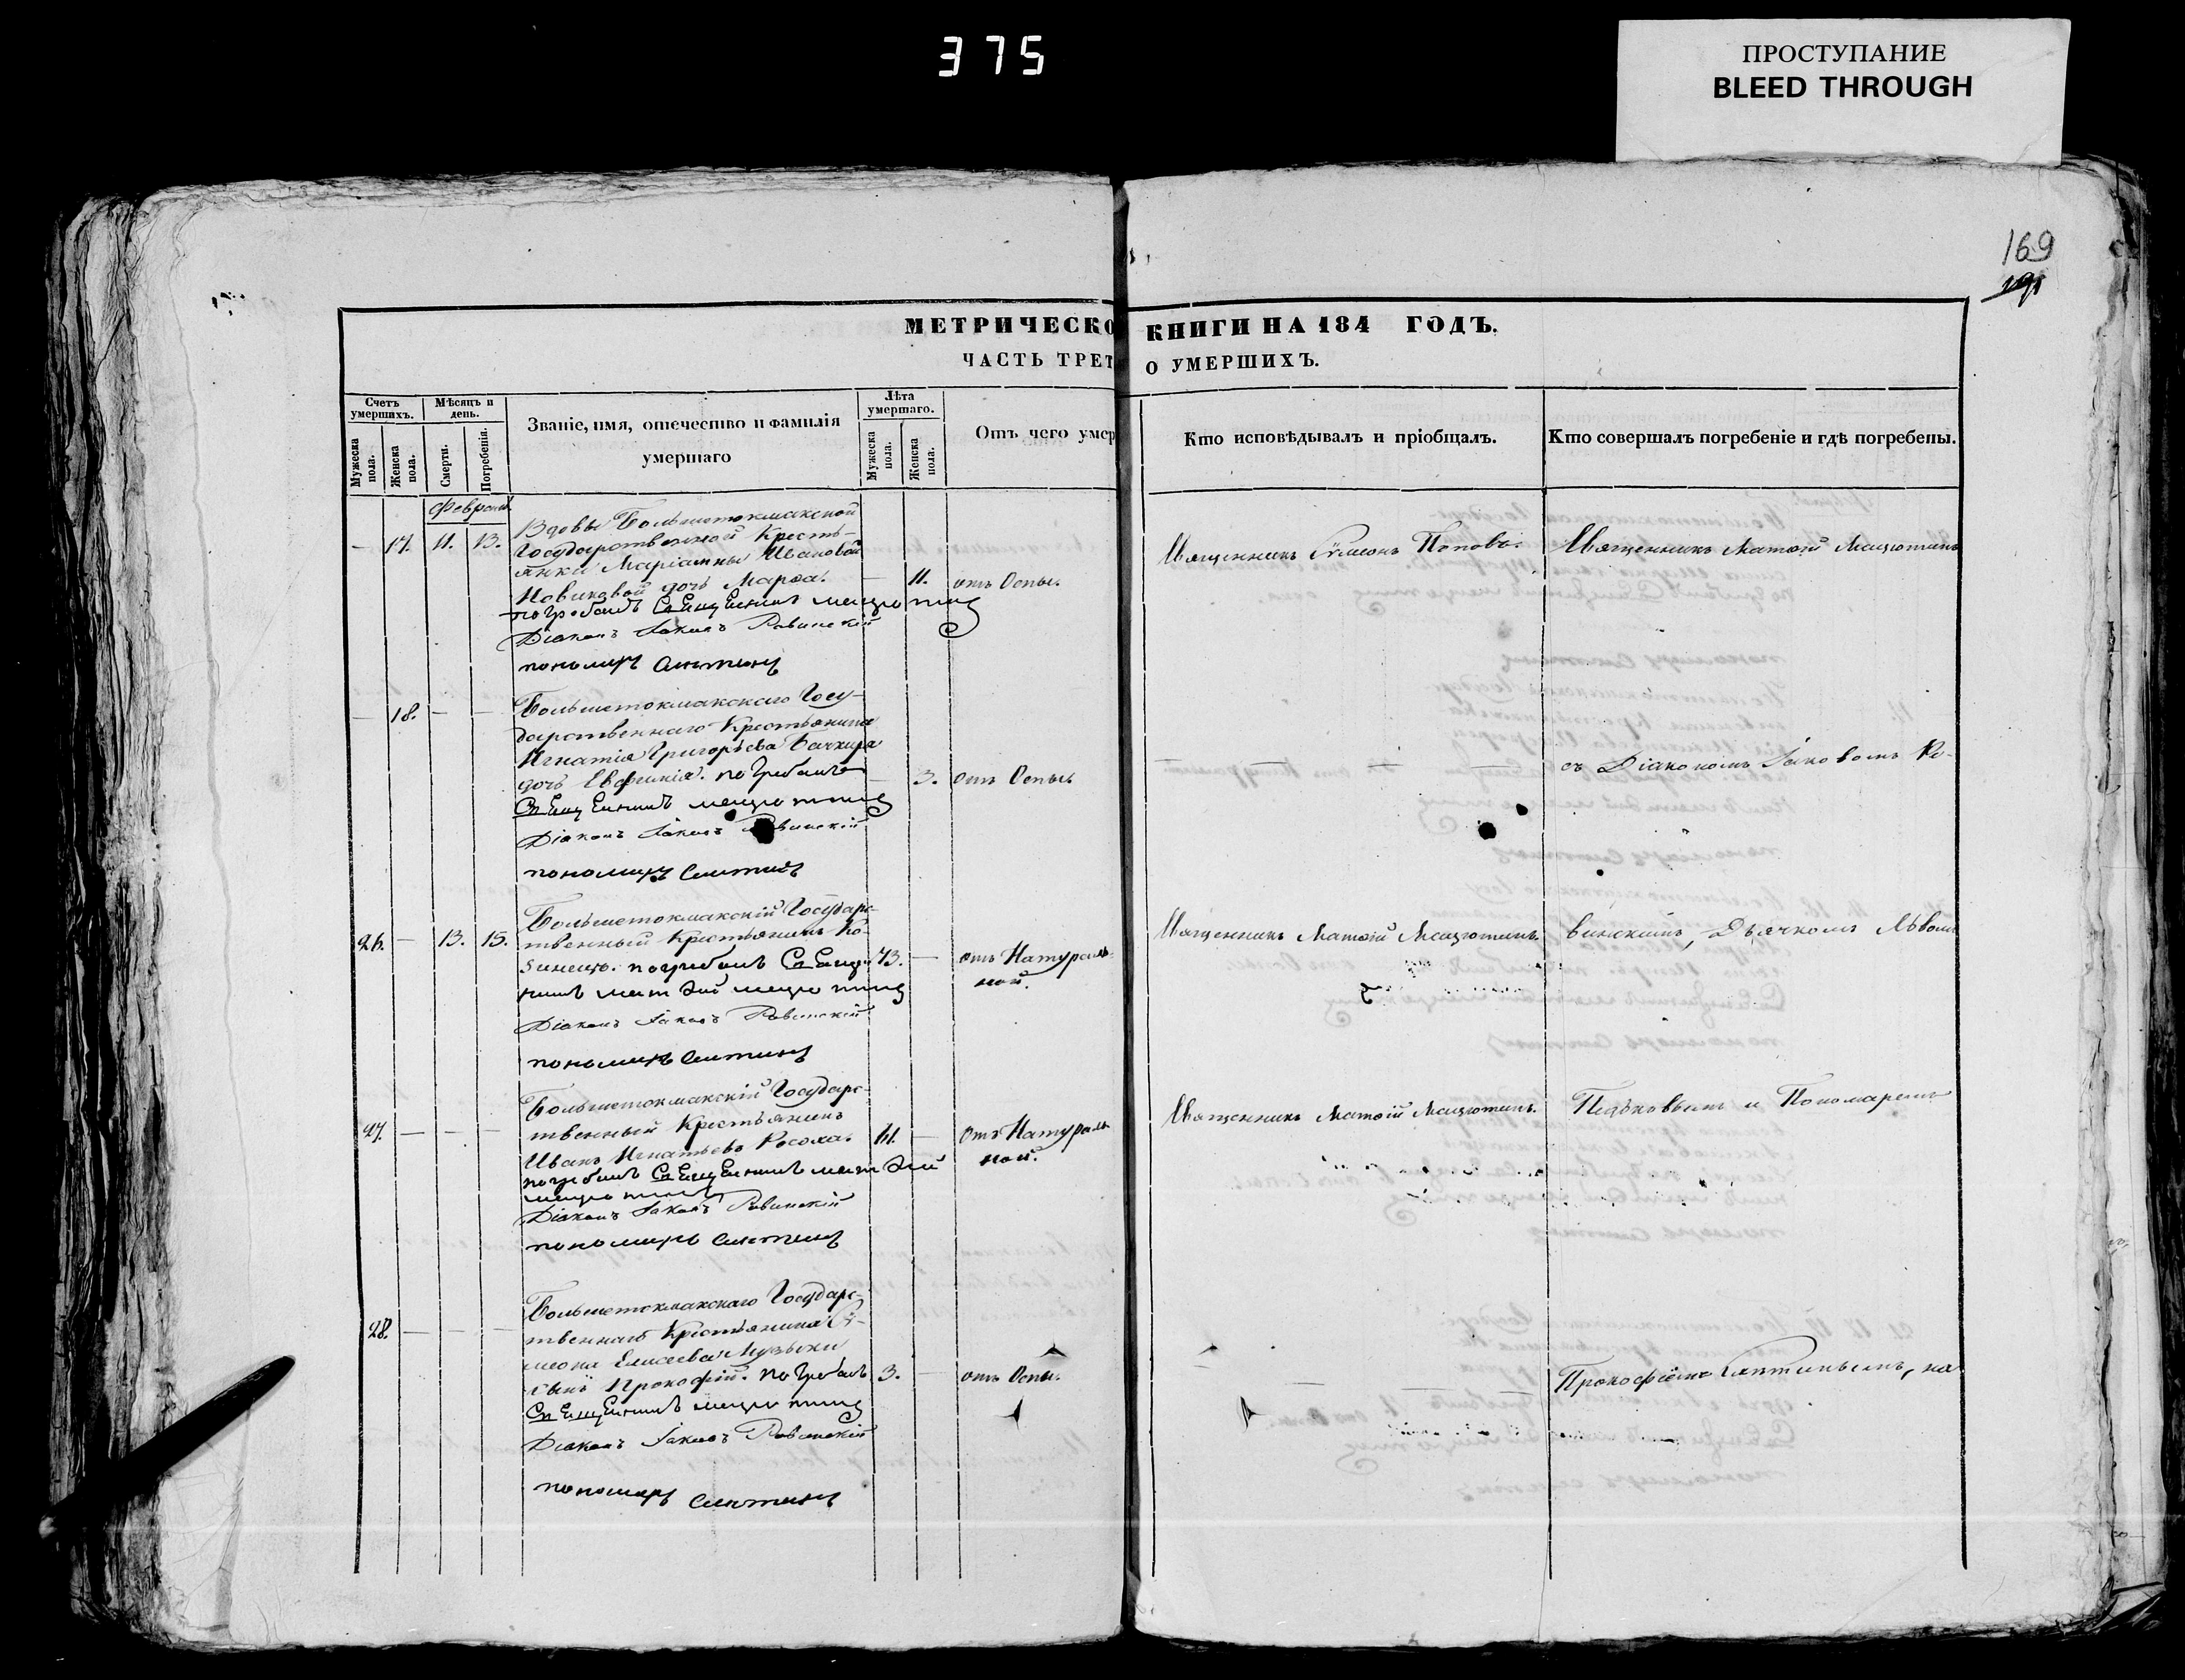 375
ПРОСТУПАНИЕ
BLEED THROUGH
169
191
МЕТРИЧЕСКО КНИГИ НА 184 ГОДЪ.
ЧАСТЬ ТРЕТ О УМЕРШИХЪ.
Счетъ умершихъ.
Мужеска пола.
Женска пола.
Мѣсяцъ и день.
Смерти.
Погребенія.
Званіе, имя, отечество и фамилія
умершаго
Лѣта умершаго.
Мужеска пола.
Женска пола.
Отъ чего умер
Кто исповѣдывалъ и пріобщалъ.
Кто совершалъ погребеніе и гдѣ погребены.
Февраль
— 17. 11. 13.
Вдовы Большетокмакской
Государственной Кресть-
янки Маріанны Ивановой
Новиковой дочь Марѳа. — 11. отъ Оспы.
погребалъ Священникъ
Діаконъ Іаковъ Ровинскій
пономарь
Священникъ Симеонъ Поповъ.
Священникъ Матѳій
— 18. — —
Большетокмакскаго Госу-
дарственнаго Крестьянина
Игнатія Григорьева
дочь Евфимія. погребалъ — 3. отъ Оспы.
Священникъ
Діаконъ Іаковъ Ровинскій
пономарь
— — — —
съ Діакономъ Іаковомъ Ро-
26. — 13. 15.
Большетокмакскій Государс-
твенный Крестьянинъ
погребалъ Священ 73. — отъ Натураль
никъ Матѳій ной.
Діаконъ Іаковъ Ровинскій
пономарь
Священникъ Матѳій
винскимъ, Дьячкомъ Львомъ
27. — — —
Большетокмакскій Государс-
твенный Крестьянинъ
Иванъ Игнатьевъ Росоха. 61. — отъ Натураль
погребалъ Священникъ Матѳій ной.
Діаконъ Іаковъ Ровинскій
пономарь
Священникъ Матѳій
и Пономаремъ
28. — — —
Большетокмакскаго Государс-
твеннаго Крестьянина Си-
меона Елисеева Музыки
сынъ Прокофій. погребалъ 3. — отъ Оспы.
Священникъ
Діаконъ Іаковъ Ровинскій
пономарь
— — — —
Прокофіемъ на